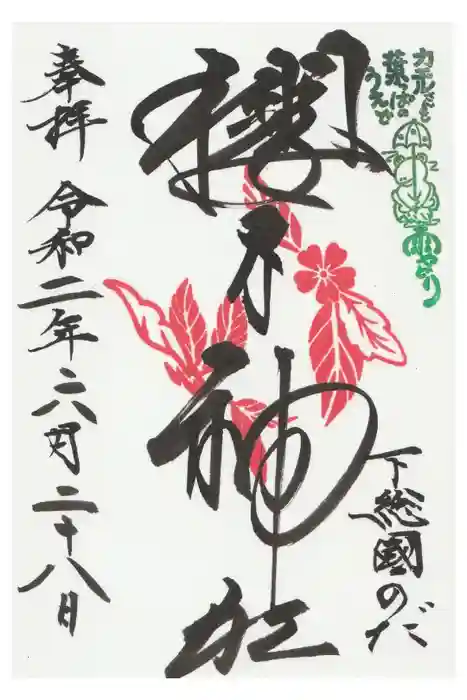 カエルさんも
葉っぱの
うえで
雨やどり
下総國のだ
櫻木神社
奉拝 令和二年六月二十八日